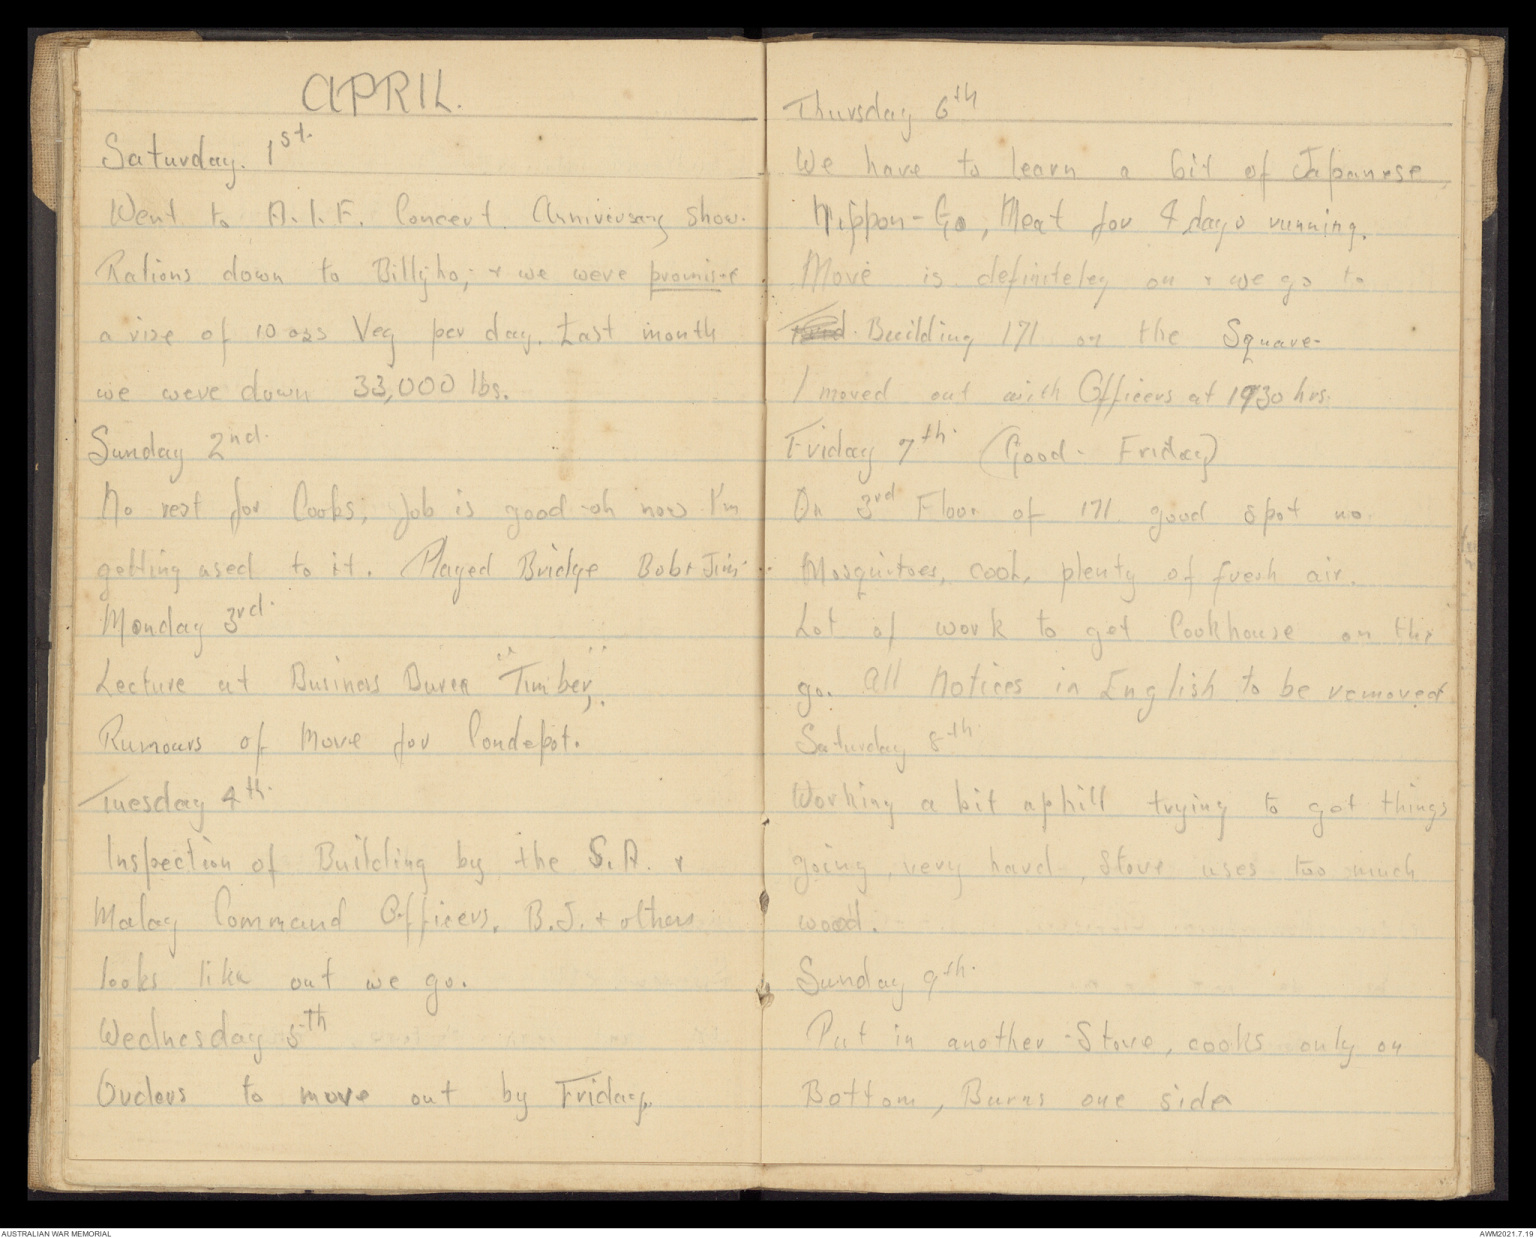 APRIL.
Saturday. 1st.
Went to A.I.F. Concert Anniversary show.
Rations down to Billyho; & we were promise
a rise of 10 ozs Veg per day. Last month
we were down 33,000 lbs.
Sunday 2nd.
No rest for Cooks, job is good-oh now I'm
getting used to it. Played Bridge Bob & Jim
Monday 3rd.
Lecture at Business Burea "Timber".
Rumours of Move for Condepot.
Tuesday 4th.
Inspection of Building by the S.A. &
Malay Command Officers. B.J. & others
looks like out we go.
Wednesday 5th
Orders to move out by Friday.
Thursday 6th
We have to learn a bit of Japanese
Nippon-Go, Meat for 4 days running.
Move is definiteley on & we go to
Building 171 on the Square.
I moved out with Officers at 1930 hrs.
Friday 7th. (Good-Friday)
On 3rd Floor of 171 good spot no
Mosquitoes, cool, plenty of fresh air.
Lot of work to get Cookhouse on the
go. All Notices in English to be removed
Saturday 8th
Working a bit uphill trying to get things
going, very hard, Stove uses too much
wood.
Sunday 9th.
Put in another Stove, cooks only on
Bottom, Burns one side
AUSTRALIAN WAR MEMORIAL
AWM2021.7.19